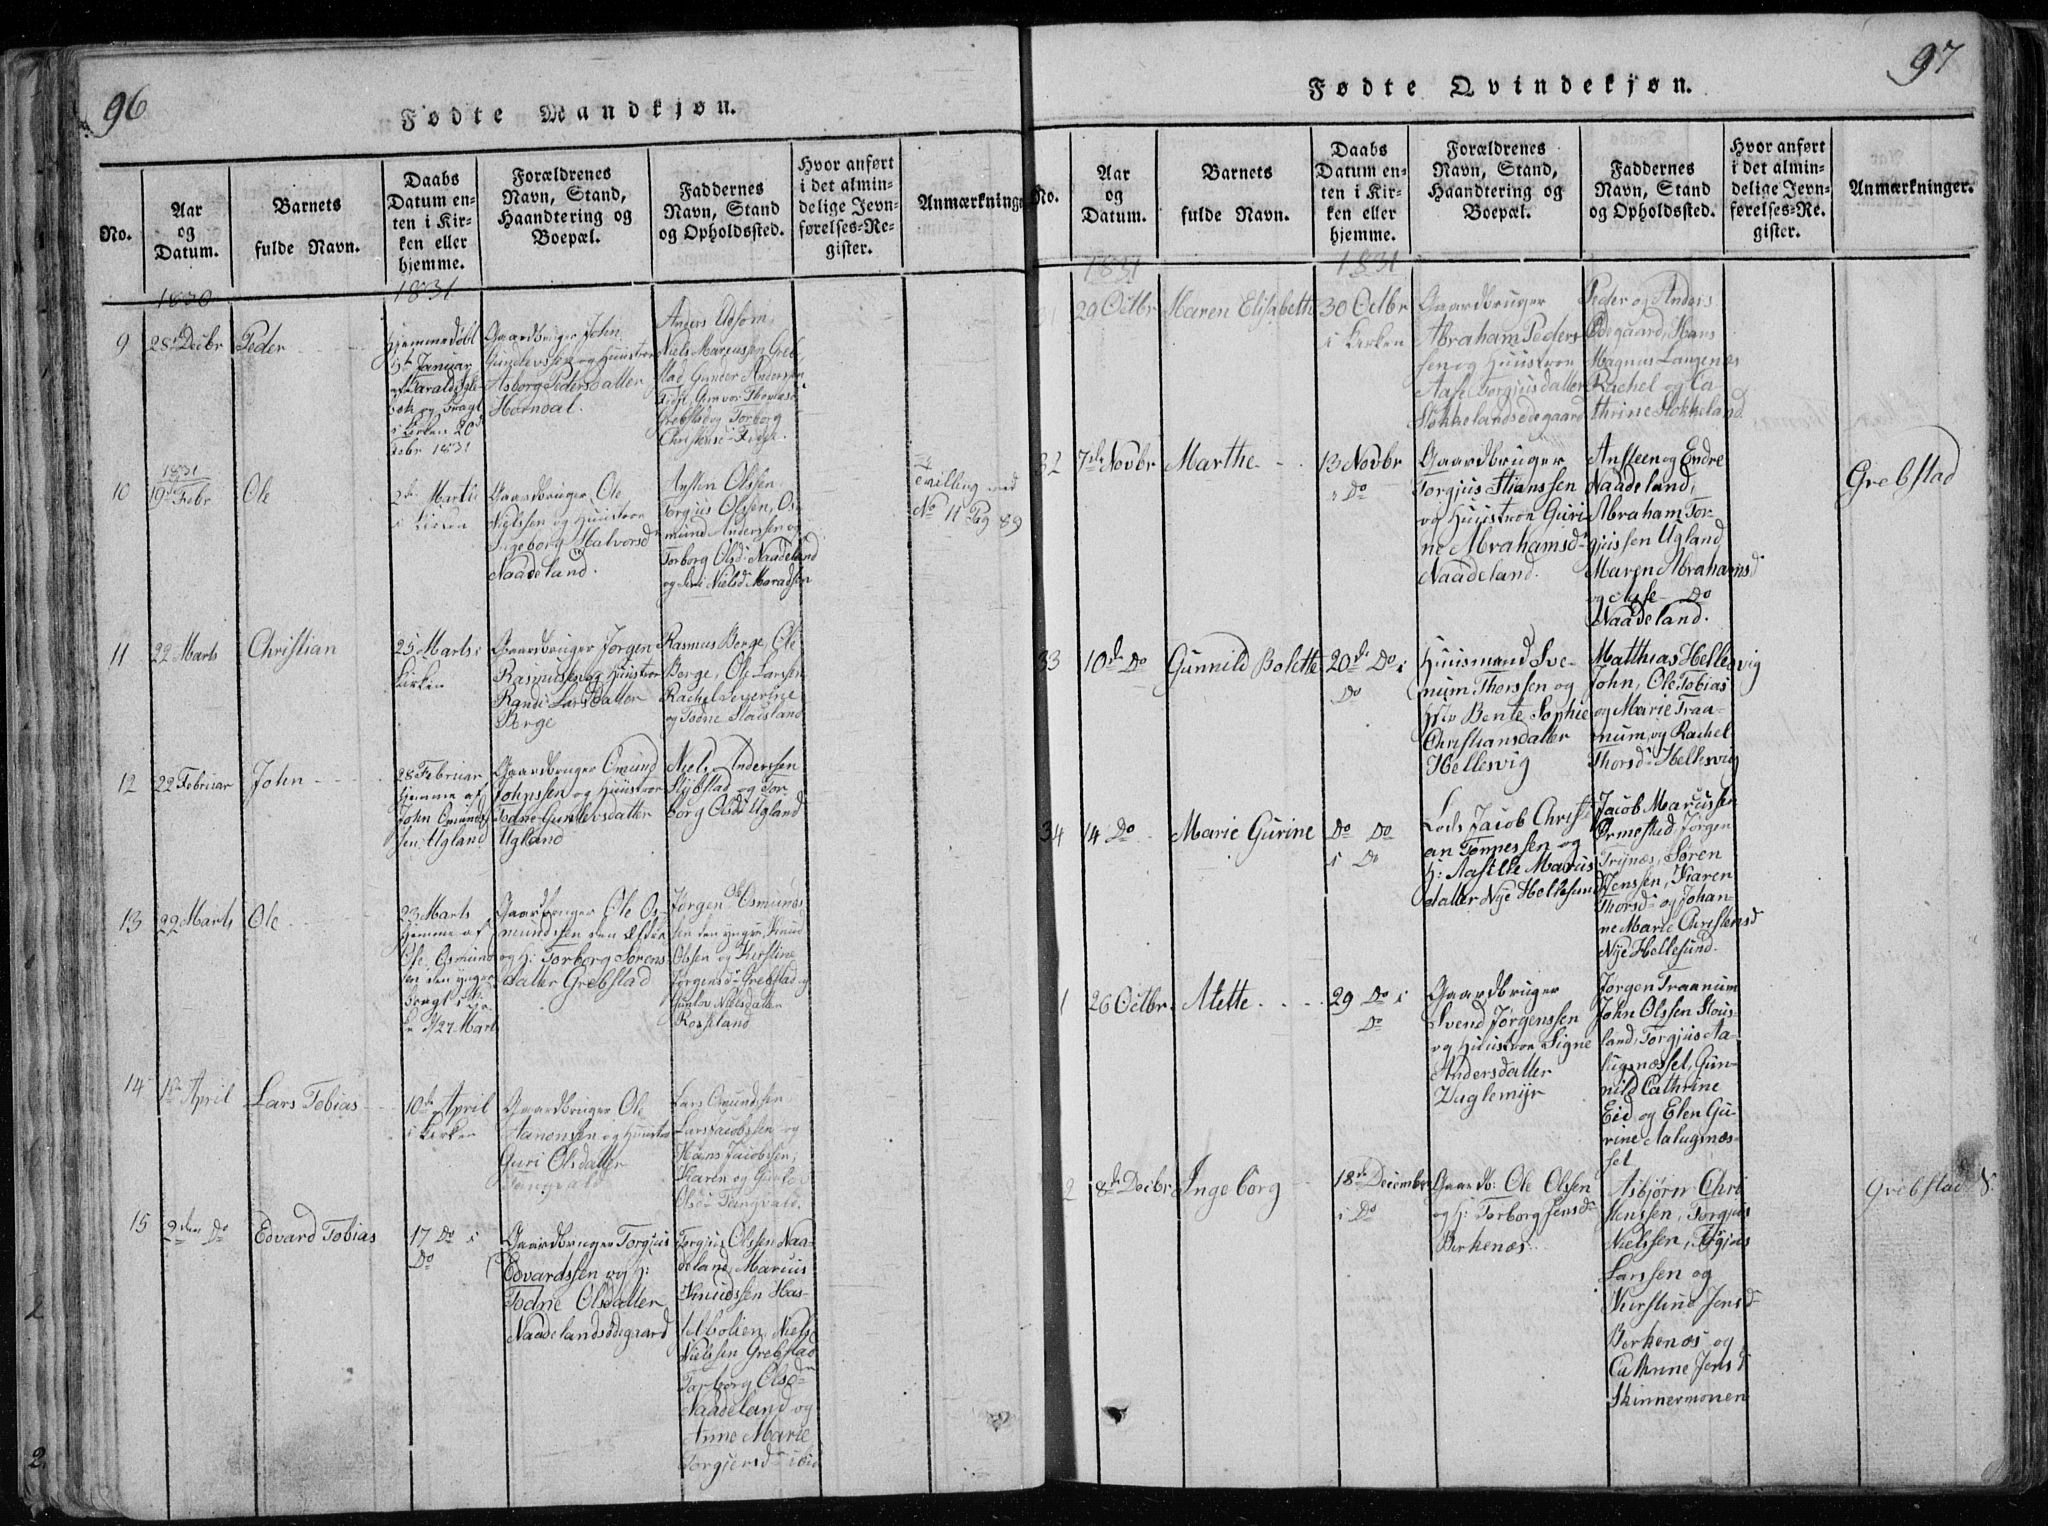 96
Fødte Mandkjøn.
No.
Aar
og
Datum.
Barnets
fulde Navn.
Daabs
Datum en-
ten i Kir-
ken eller
hjemme.
Forældrenes
Navn, Stand,
Haandtering og
Boepæl.
Faddernes
Navn, Stand
og Opholdssted.
Hvor anført
i det almin-
delige Jevn-
førelses-Re-
gister.
Anmærkninge
1830
1831
9
28 Decbr
Peder
Hjemmedøbt
Januar
af Harald
og Bragt
i Kirken 20
Febr 1831
Gaardbruger John
Gundevssen og Huustroe
Asborg Pedersdatter
Horndal.
Anders
Niels Marcussen Greb-
stad, Gunder Anderssen
Gunvor Thomasd
Grebstad og Torborg
1831
10
19de Febr
Ole
2de Marts
i Kirken
Gaardbruger Ole
Nielssen og Huustroe
Ingeborg Halvorsd
Naadeland.
Ansten Olssen,
Torgius Olssen, Os-
mund Anderssen og
Torborg Olsd Naadeland
og Siri Nielsd
Tvilling med
No 11 Pag 89
11
22 Marts
Christian
25 Marts i
Kirken
Gaardbruger Jørgen
Rasmussen og Huustroe
Randi Larsdatter
Berge
Rasmus Berge, Ole
Berge, Ole Larssen
Rachel Severine
og Todne Stausland
12
22 Februar
John
28 Februar
Hjemme af
John Omunds-
sen Ugland
Gaardbruger Omund
Johnssen og Huustroe
Todne Gunlevsdatter
Ugland
Niels Anderssen
og Tor-
borg Olsd Ugland
13
22 Marts
Ole
23 Marts
Hjemme af
Ole Osmund
sen den yngre
bragt i Kir
ke d/27 Mart
Gaardbruger Ole Os-
mundssen den Ældre
og H: Torborg Sørens
datter Grebstad
Jørgen Ole Osmunds
sen den yngre, Knud
Olssen og Kirstine
Jørgensd Grebstad og
Gunlov Nielsdatter
Rosseland
14
1ste April
Lars Tobias
10de April
i Kirken
Gaardbruger Ole
Aanonsen og Huustroe
Guri Olsdatter
Tangvald
Lars Omundssen
Lars Jacobssen og
Hans Jacobssen,
Karen og Gunlov
Olsd Tangvald.
15
2den Do
Edvard Tobias
17 Do i
Do
Gaardbruger Torgius
Edvardssen og H:
Todne Olsdatter
Naadelandsødegaard
Torgius Olssen Naa-
deland, Marcus
Knudssen Has-
selbolien, Niels
Nielssen Grebstad
Torborg Olsd
Naadeland og
Anne Marie
Torgjersd ibid
97
Fødte Qvindekjøn.
No.
Aar
og
Datum.
Barnets
fulde Navn.
Daabs
Datum en-
ten i Kir-
ken eller
hjemme.
Forældrenes
Navn, Stand,
Haandtering og
Boepæl.
Faddernes
Navn, Stand
og Opholdssted.
Hvor anført
i det almin-
delige Jevn-
førelses-Re.
gister.
Anmærkninger.
1831
1831
31
29 Octbr
Maren Elisabeth
30 Octbr
i Kirken
Gaardbruger
Abraham Peders
sen og Huustroe
Aase Torgjusdatter
Stokkelandsødegaard
Peder og Anders
Ødegaard, Hans
Magnus Langenes
Rachel og Ca
thrine Stokkeland
32
7de Novbr
Marthe
13 Novbr
i Do
Gaardbruger
Torgjus Stianssen
og Huustroe Guri
ne Abrahamsd
Naadeland.
Ansteen og Endre
Naadeland,
Abraham Tor-
gjussen Ugland
Maren Abrahamsd
og Aase Do
Naadeland.
Grebstad
33
10de Do
Gunnild Bolette
20de Do i
Do
Huusmand Sve-
num Thorssen og
Bente Sophie
Christiansdatter
Hellesvig
Matthias Hellesvig
John, Ole Tobias
og Marie Traa-
num, og Rachel
Thorsd Hellesvig
34
14 Do
Marie Gurine
Do Do
i Do
Lods Jacob Christi
an Tønnessen og
H: Aasille Marcus
datter Nye Hellesund
Jacob Marcussen
Ormestad, Jørgen
Trysnæs, Søren
Jenssen, Karen
Thorsd og Johan-
ne Marie Christensd
Nye Hellesund.
1
26 Octbr
Mette
29 Do i
Do
Gaardbruger
Svend Jørgenssen
og Huustroe Signe
Andersdatter
Uuglemyr
Jørgen Traanum
John Olssen Stous-
land, Torgjus Aa-
lugnæsset, Gun-
nild Cathrine
Eid og Elen Gu-
rine Aalugnæs-
set
2
8de Decbr
Ingeborg
18de December
i Do
Gaardb: Ole Olssen
og H: Torborg Jensd
Birkenæs
Asbjørn Chri
stenssen, Torgjus
Nielssen, Torgjus
Larssen og
Kirstine Jensd
Birkenæs og
Cathrine Jensd
Skinnermonen
Grebstad S.
2
2